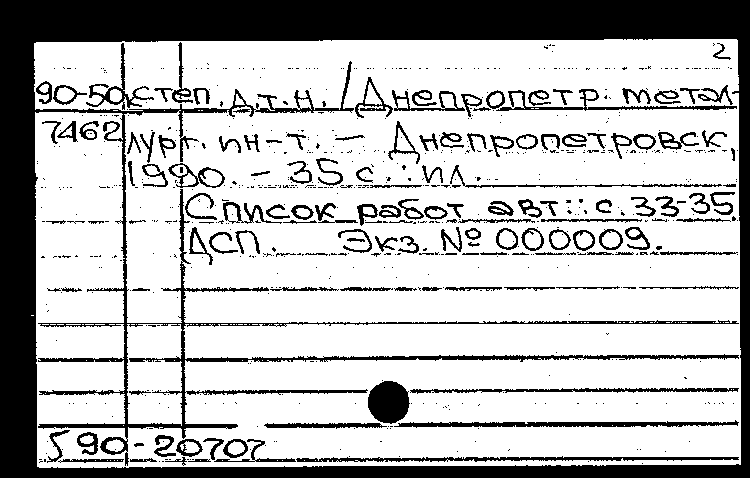 2
90-50 степ. д.т.н. / Днепропетр. метал-
7462 лург. ин-т. — Днепропетровск,
1990. - 35 с. : ил.
Список работ авт.: с. 33-35.
ДСП. Экз. № 000009.
590-20707